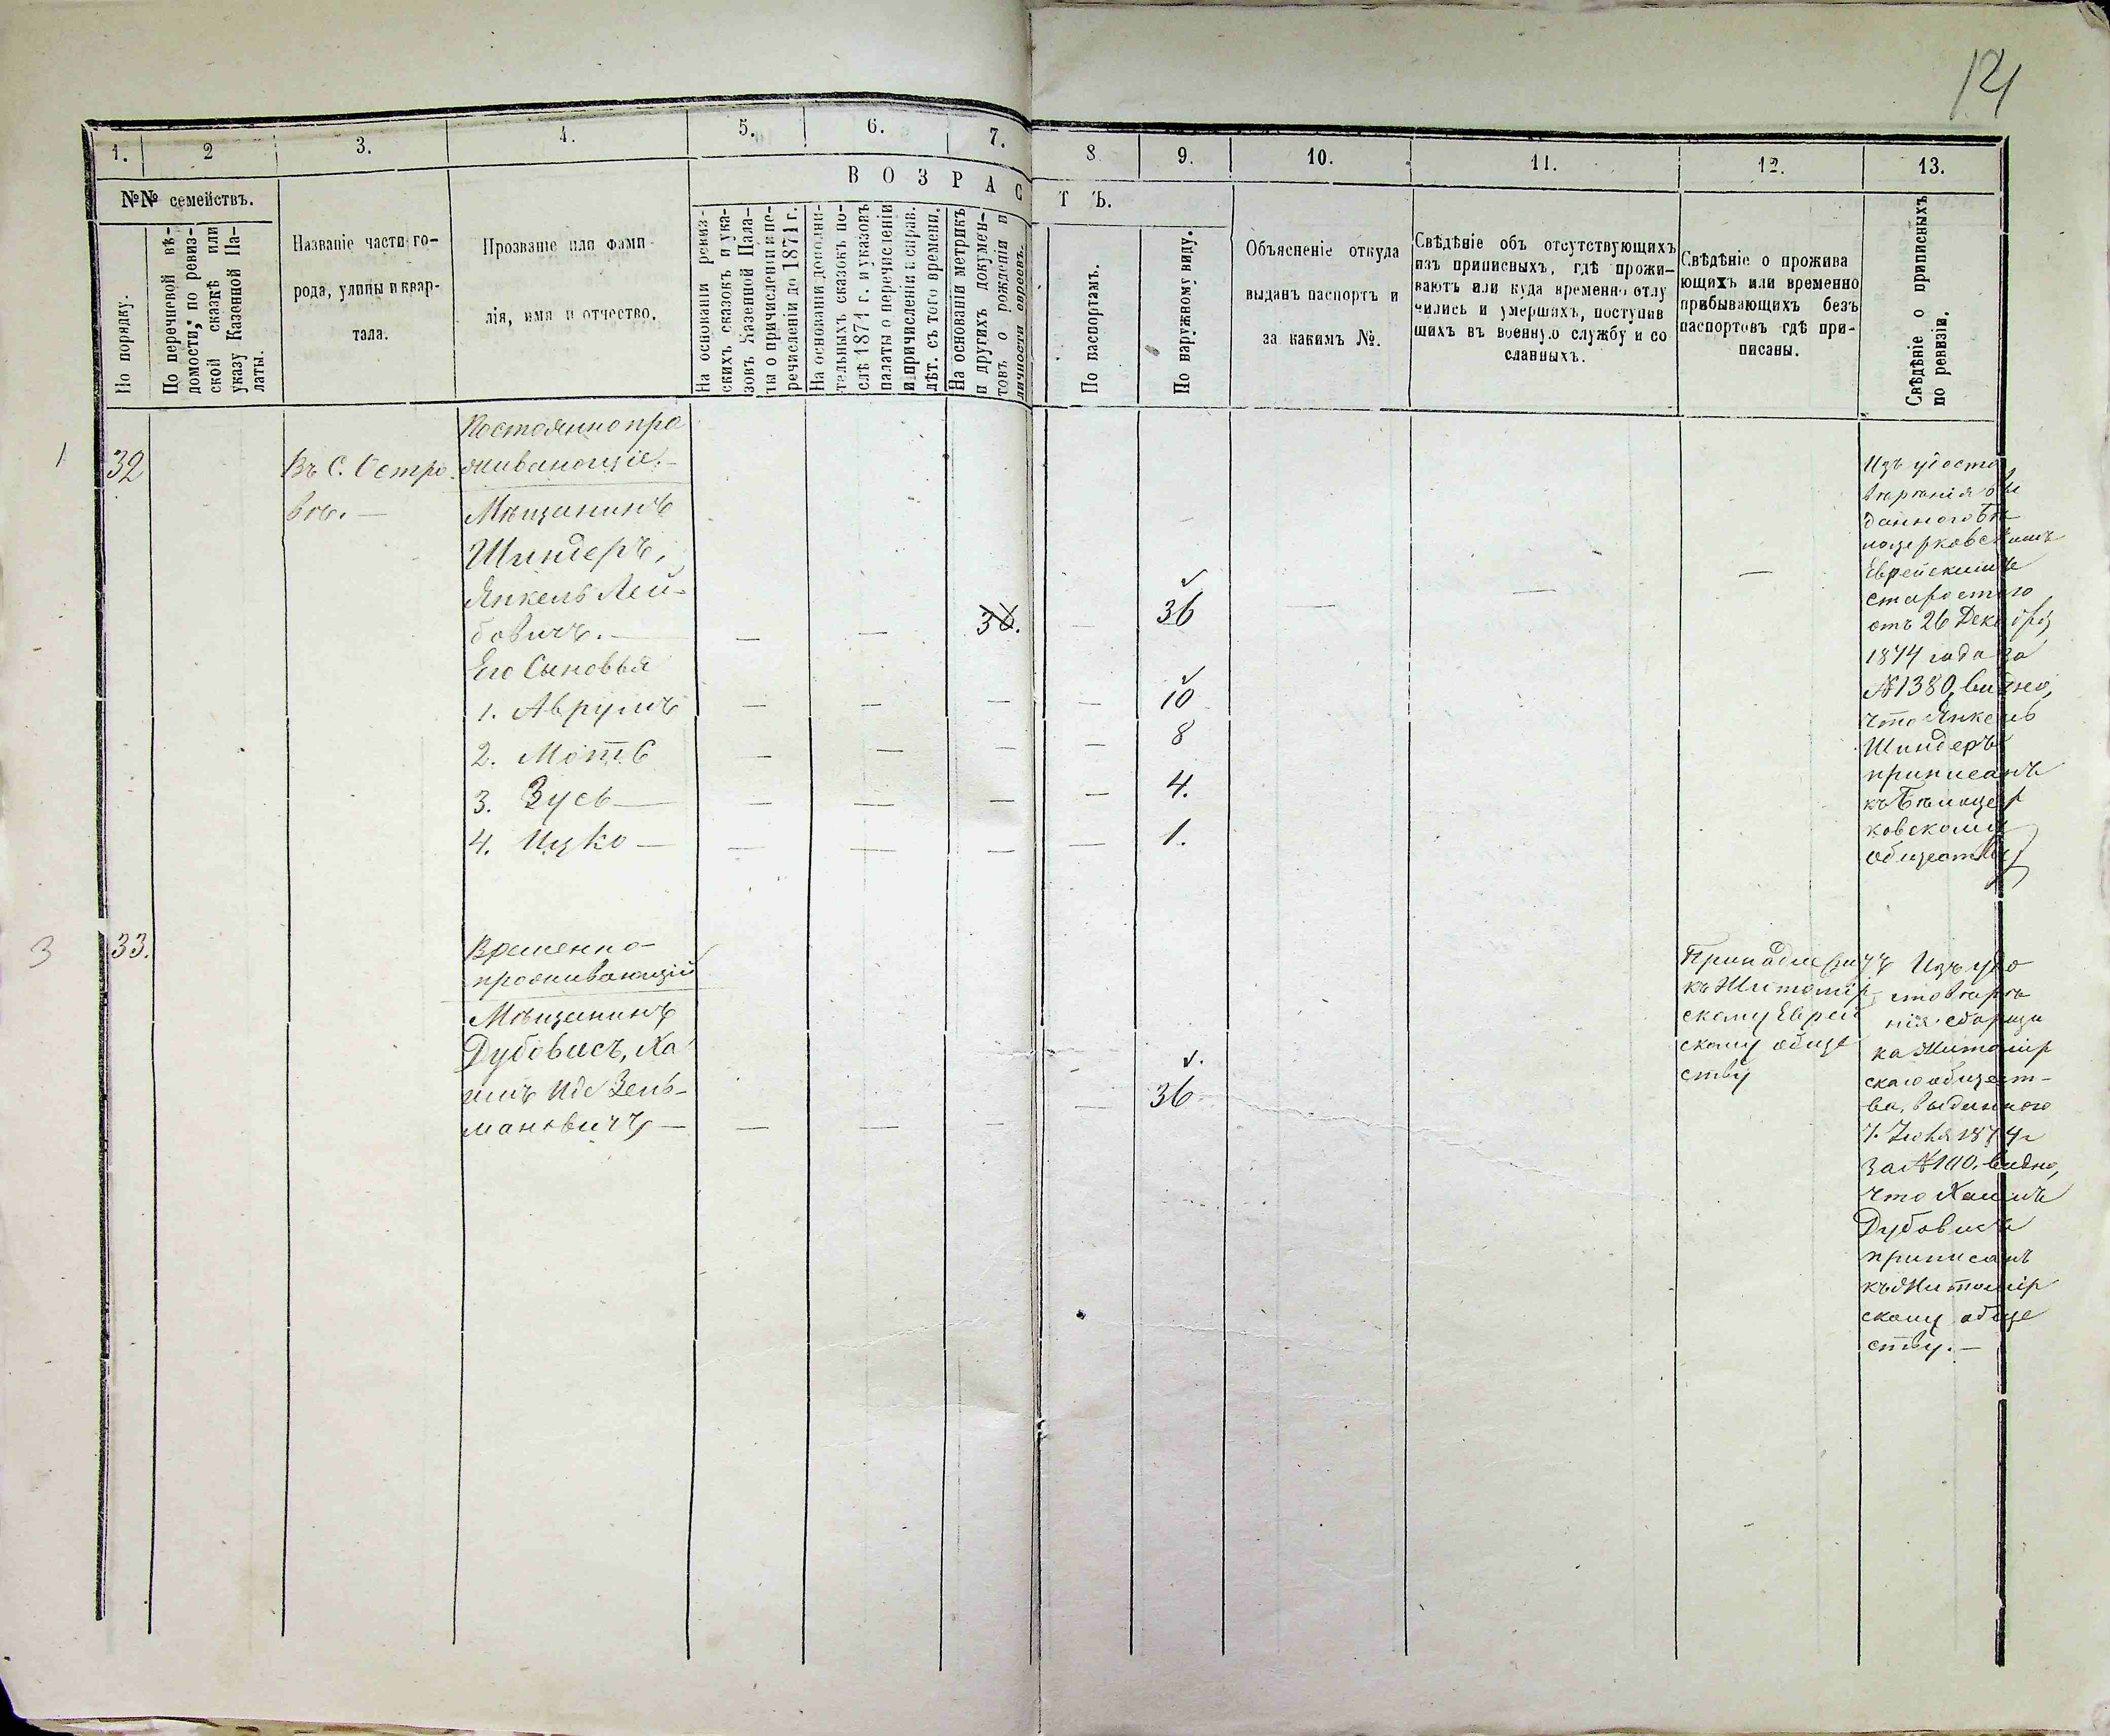 121
1. 2 3. 4. 5. 6. 7. 8 9. 10. 11. 12. 13.
№№ семействъ.
В О З Р А С Т Ъ.
По порядку.
По перечневой вѣ-
домости, по ревиз-
ской сказкѣ или
указу Казенной Па-
латы.
Названіе части го-
рода, улицы и квар-
тала.
Прозваніе или фами-
лія, имя и отчество.
На основаніи ревиз-
скихъ сказокъ и ука-
зовъ Казенной Пала-
ты о причисленіи и пе-
речисленіи до 1871 г.
На основаніи дополни-
тельныхъ сказокъ по-
слѣ 1871 г. и указовъ
палаты о перечисленіи
и причисленіи и справ.
лѣт. съ того времени.
На основаніи метрикъ
и другихъ докумен-
товъ о рожденіи и
личности евреевъ.
По паспортамъ.
По наружному виду.
Объясненіе откуда
выданъ паспортъ и
за какимъ №.
Свѣдѣніе объ отсутствующихъ
изъ приписныхъ, гдѣ прожи-
ваютъ или куда временно отлу
чились и умершихъ, поступив
шихъ въ военную службу и со
сланныхъ.
Свѣдѣніе о прожива
ющихъ или временно
прибывающихъ безъ
паспортовъ гдѣ при-
писаны.
Свѣдѣніе о приписныхъ
по ревизіи.
1 32
Въ С. Остро
вѣ. —
Постоянно про
живающіе. —
Мѣщанинъ
Шиндеръ,
Янкель Лей-
бовичъ. — — — 36. — 36 — — —
Его Сыновья
1. Аврумъ — — — — 10
2. Моть — — — — 8
3. Зусь — — — — — 4.
4. Ицко — — — — — 1.
Изъ удосто
вѣренія вы
даннаго Бѣ
лоцерковскимъ
Еврейскимъ
старостою
отъ 26 Декабря
1874 года за
№ 1380, видно,
что Янкель
Шиндеръ
приписанъ
къ Бѣлоцер
ковскому
обществу
3 33.
Временно-
проживающій
Мѣщанинъ
Дубовисъ, Ха
имъ Иде Зель-
мановичъ — — — — — 36
Принадлежитъ
къ Житомір-
скому Еврей
скому обще
ству
Изъ удо
стовѣре
нія сборщи
ка Житомір
скаго общест-
ва, выданнаго
за № 110. видно,
что Хаимъ
Дубовисъ
приписанъ
къ Житомір
скому обще
ству. —